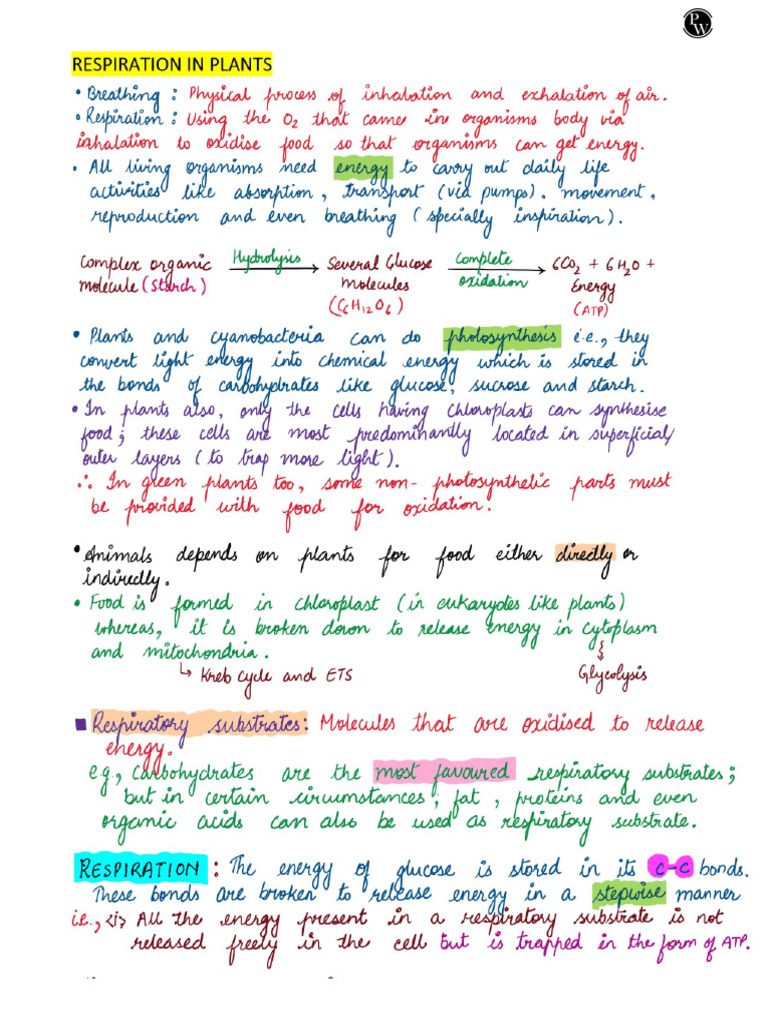 PW
RESPIRATION IN PLANTS
• Breathing : Physical process of inhalation and exhalation of air.
• Respiration : Using the O₂ that came in organisms body via
inhalation to oxidise food so that organisms can get energy.
• All living organisms need energy to carry out daily life
activities like absorption, transport (via pumps), movement,
reproduction and even breathing (specially inspiration).
Complex organic molecule (Starch) Hydrolysis → Several Glucose Molecules (C₆H₁₂O₆) Complete oxidation → 6CO₂ + 6H₂O + Energy (ATP)
• Plants and cyanobacteria can do photosynthesis i.e., they
convert light energy into chemical energy which is stored in
the bonds of carbohydrates like glucose, sucrose and starch.
• In plants also, only the cells having chloroplasts can synthesise
food; these cells are most predominantly located in superficial/
outer layers (to trap more light).
∴ In green plants too, some non-photosynthetic parts must
be provided with food for oxidation.
• Animals depends on plants for food either directly or
indirectly.
• Food is formed in chloroplast (in eukaryotes like plants)
whereas, it is broken down to release energy in cytoplasm
and mitochondria.
↳ Kreb Cycle and ETS Glycolysis
■ Respiratory substrates: Molecules that are oxidised to release
energy.
e.g., carbohydrates are the most favoured respiratory substrates;
but in certain circumstances, fat, proteins and even
organic acids can also be used as respiratory substrate.
RESPIRATION : The energy of glucose is stored in its C-C bonds.
These bonds are broken to release energy in a stepwise manner
i.e., <i> All the energy present in a respiratory substrate is not
released freely in the cell but is trapped in the form of ATP.